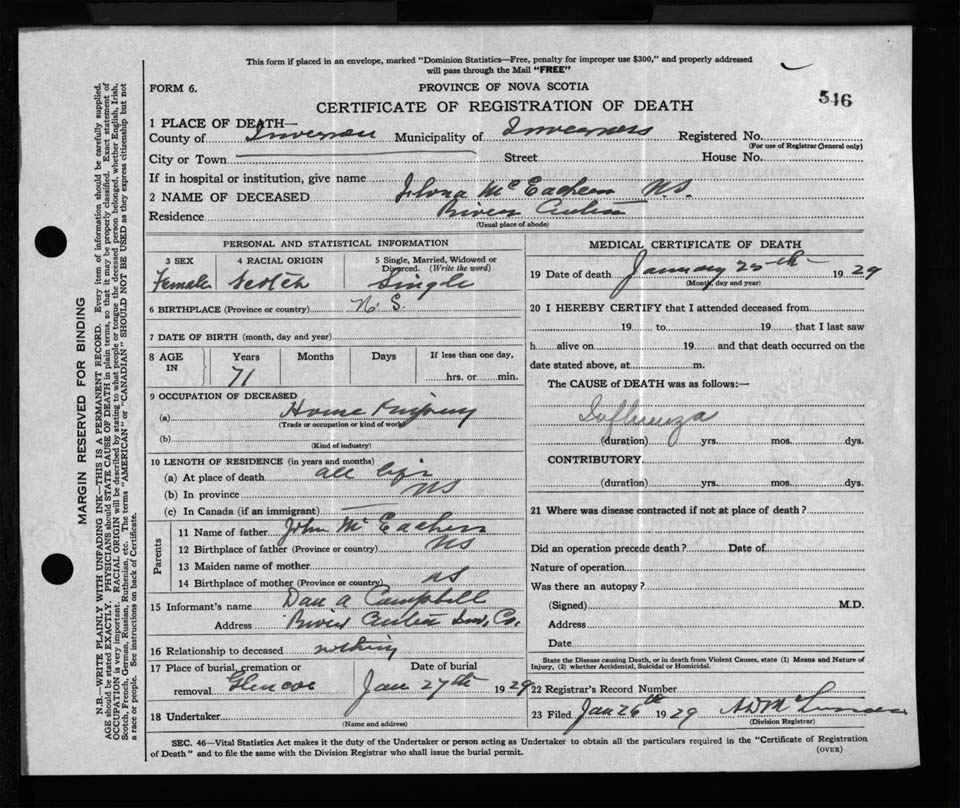 This form if placed in an envelope, marked "Dominion Statistics—Free, penalty for improper use $300," and properly addressed
will pass through the Mail "FREE"
FORM 6.
PROVINCE OF NOVA SCOTIA
546
CERTIFICATE OF REGISTRATION OF DEATH
1 PLACE OF DEATH—
County of Inverness Municipality of Inverness Registered No.
(For use of Registrar General only)
City or Town Street House No.
If in hospital or institution, give name
2 NAME OF DECEASED McEachern NS.
Residence River
(Usual place of abode)
PERSONAL AND STATISTICAL INFORMATION
3 SEX 4 RACIAL ORIGIN 5 Single, Married, Widowed or Divorced. (Write the word)
Female Scotch Single
6 BIRTHPLACE (Province or country) N. S.
7 DATE OF BIRTH (month, day and year)
8 AGE IN Years Months Days If less than one day,
71 hrs. or min.
9 OCCUPATION OF DECEASED
(a) Home
(Trade or occupation or kind of work)
(b)
(Kind of industry)
10 LENGTH OF RESIDENCE (in years and months)
(a) At place of death all life
(b) In province NS
(c) In Canada (if an immigrant)
Parents
11 Name of father John McEachern
12 Birthplace of father (Province or country) NS
13 Maiden name of mother
14 Birthplace of mother (Province or country) NS
15 Informant's name Dan A Campbell
Address River Inv. Co.
16 Relationship to deceased nothing
17 Place of burial, cremation or removal Glencoe Date of burial Jan 27th 1929
18 Undertaker
(Name and address)
MEDICAL CERTIFICATE OF DEATH
19 Date of death January 25th 1929
(Month, day and year)
20 I HEREBY CERTIFY that I attended deceased from
19 to 19 that I last saw
h alive on 19 and that death occurred on the
date stated above, at m.
The CAUSE of DEATH was as follows:—
Influenza
(duration) yrs. mos. dys.
CONTRIBUTORY
(duration) yrs. mos. dys.
21 Where was disease contracted if not at place of death?
Did an operation precede death? Date of
Nature of operation
Was there an autopsy?
(Signed) M.D.
Address
Date
State the Disease causing Death, or in death from Violent Causes, state (1) Means and Nature of
Injury, (2) whether Accidental, Suicidal or Homicidal.
22 Registrar's Record Number
23 Filed Jan 26th 1929
(Division Registrar)
SEC. 46—Vital Statistics Act makes it the duty of the Undertaker or person acting as Undertaker to obtain all the particulars required in the "Certificate of Registration
of Death" and to file the same with the Division Registrar who shall issue the burial permit. (OVER)
MARGIN RESERVED FOR BINDING
N.B.—WRITE PLAINLY WITH UNFADING INK—THIS IS A PERMANENT RECORD. Every item of information should be carefully supplied.
AGE should be stated EXACTLY. PHYSICIANS should STATE CAUSE OF DEATH in plain terms, so that it may be properly classified. Exact statement of
OCCUPATION is very important. RACIAL ORIGIN will be described by stating to what people or tongue the deceased person belonged, whether English, Irish,
Scotch, French, German, Russian, Ruthenian, etc. The terms "AMERICAN" or "CANADIAN" SHOULD NOT BE USED as they express citizenship but not
a race or people. See instructions on back of Certificate.